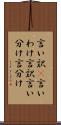 言い訳言い
わけ言訳言い
分け言分け